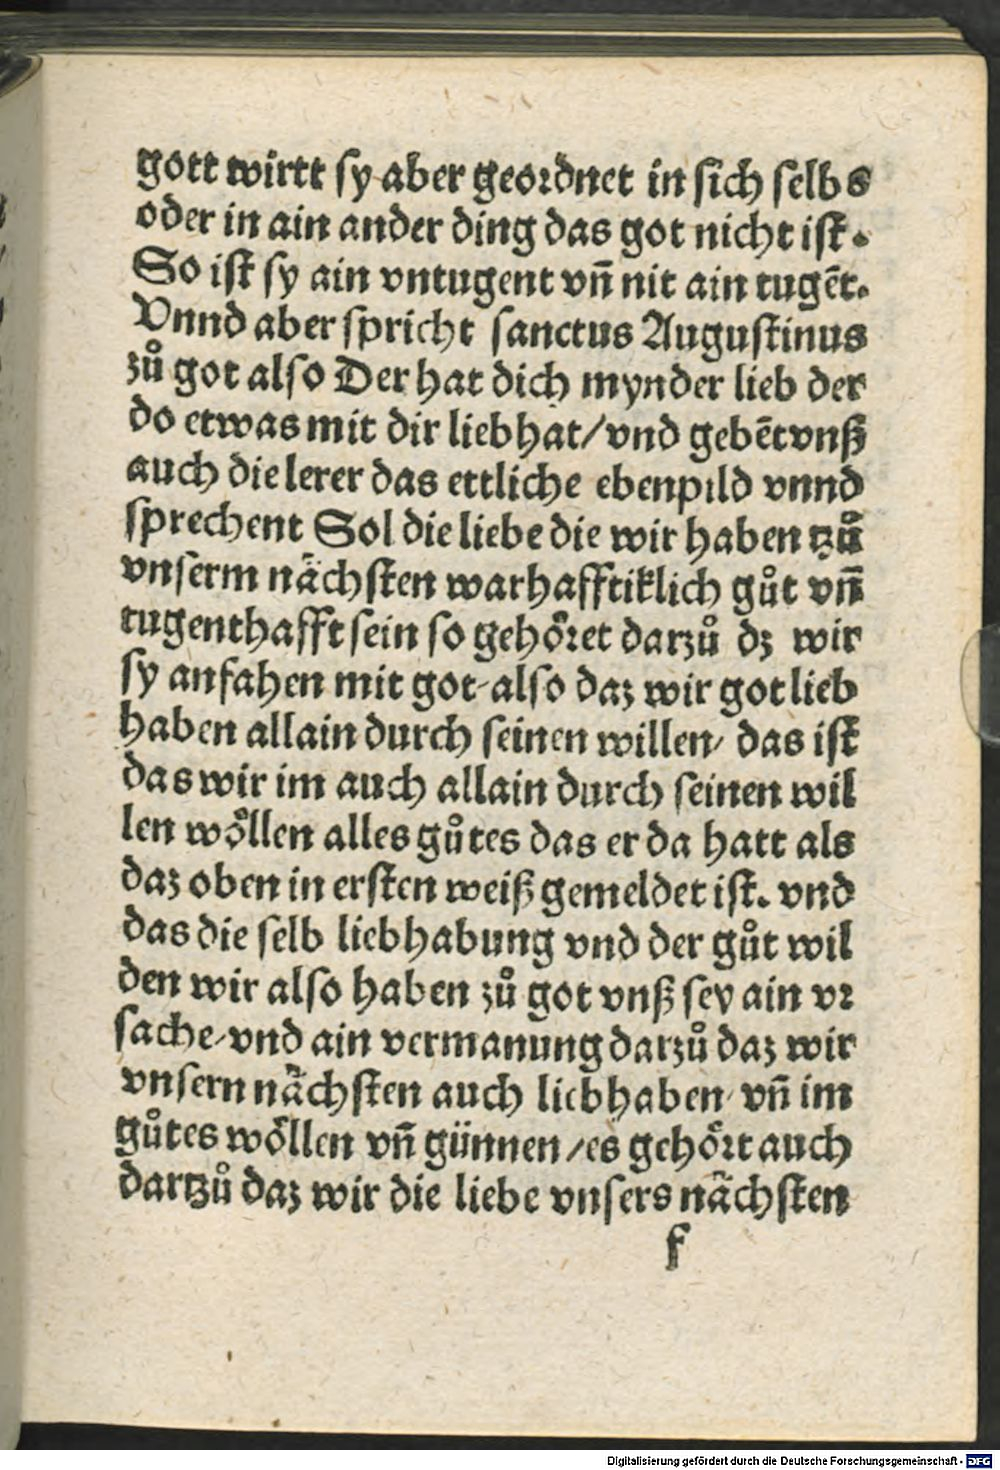 gott wirtt sy aber geordnet in sich selbs
oder in ain ander ding das got nicht ist.
So ist sy ain vntugent vn̄ nit ain tugēt.
Vnnd aber spricht sanctus Augustinus
zů got also Der hat dich mynder lieb der
do etwas mit dir lieb hat/vnd gebēt vnß
auch die lerer das ettliche ebenpild vnnd
sprechent Sol die liebe die wir haben tzů
vnserm nächsten warhafftiklich gůt vn̄
tugenthafft sein so gehöret darzů dz wir
sy anfahen mit got also daz wir got lieb
haben allain durch seinen willen/ das ist
das wir im auch allain durch seinen wil
len wöllen alles gůtes das er da hatt als
daz oben in ersten weiß gemeldet ist. vnd
das die selb liebhabung vnd der gůt wil
den wir also haben zů got vnß sey ain vr
sache/vnd ain vermanung darzů daz wir
vnsern nächsten auch liebhaben/ vn̄ im
gůtes wöllen vn̄ günnen/es gehört auch
dartzů daz wir die liebe vnsers nächsten
f
Digitalisierung gefördert durch die Deutsche Forschungsgemeinschaft - DFG